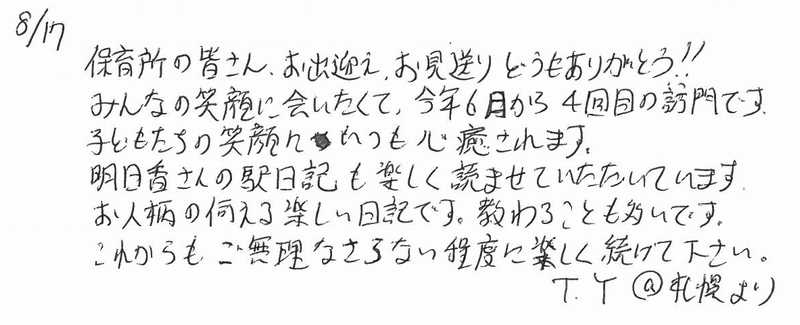 8/17
保育所の皆さん、お出迎え、お見送りどうもありがとう!!
みんなの笑顔に会いたくて、今年6月から4回目の訪問です。
子どもたちの笑顔にいつも心癒されます。
明日香さんの駅日記も楽しく読ませていただいています。
お人柄の伺える楽しい日記です。教わることも多いです。
これからもご無理なさらない程度に楽しく続けて下さい。
T.Y @札幌より